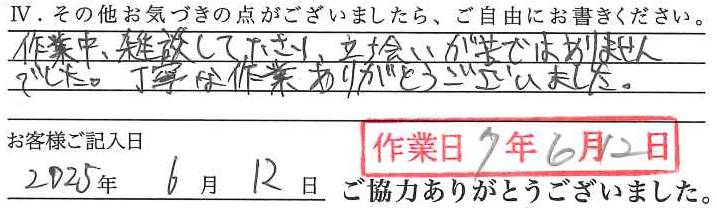 Ⅳ. その他お気づきの点がございましたら、ご自由にお書きください。
作業中、雑談してたさり、立ち会いが苦ではありません
でした。丁寧な作業ありがとうございました。
お客様ご記入日
作業日 7年6月12日
2025年 6月 12日 ご協力ありがとうございました。